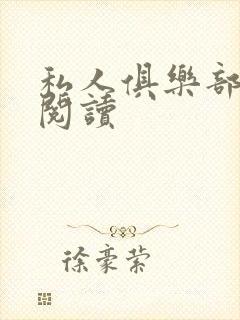 私人俱樂部
閱讀
徐豪縈